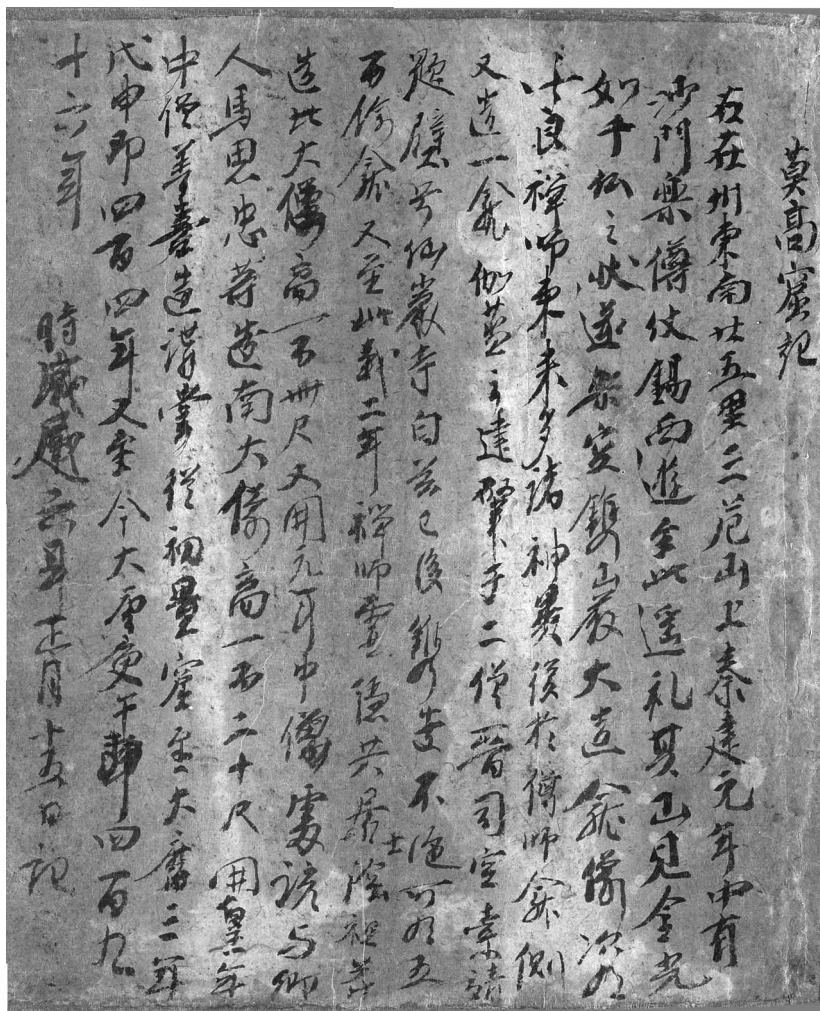 莫高窟記
右在州東南廿五里三危山上秦建元年中有
沙門樂僔仗錫西遊至此遙礼其山見金光
如千仏之狀遂架空鐫巖大造龕像次有
法良禪師東來多諸神異復於僔師龕側
又造一龕伽藍之建肇于二僧晉司空索靖
題壁号仙巖寺自茲已後鐫造不絕可有五
百餘龕又至延載二年禪師靈隱共居士陰祖等
造北大像高一百卌尺又開元年中僧處諺与鄉
人馬思忠等造南大像高一百二十尺開皇年
中僧善喜造講堂從初置窟至大曆三年
戊申即四百四年又至今大唐庚午即四百九
十六年 時咸通六年正月十五日記